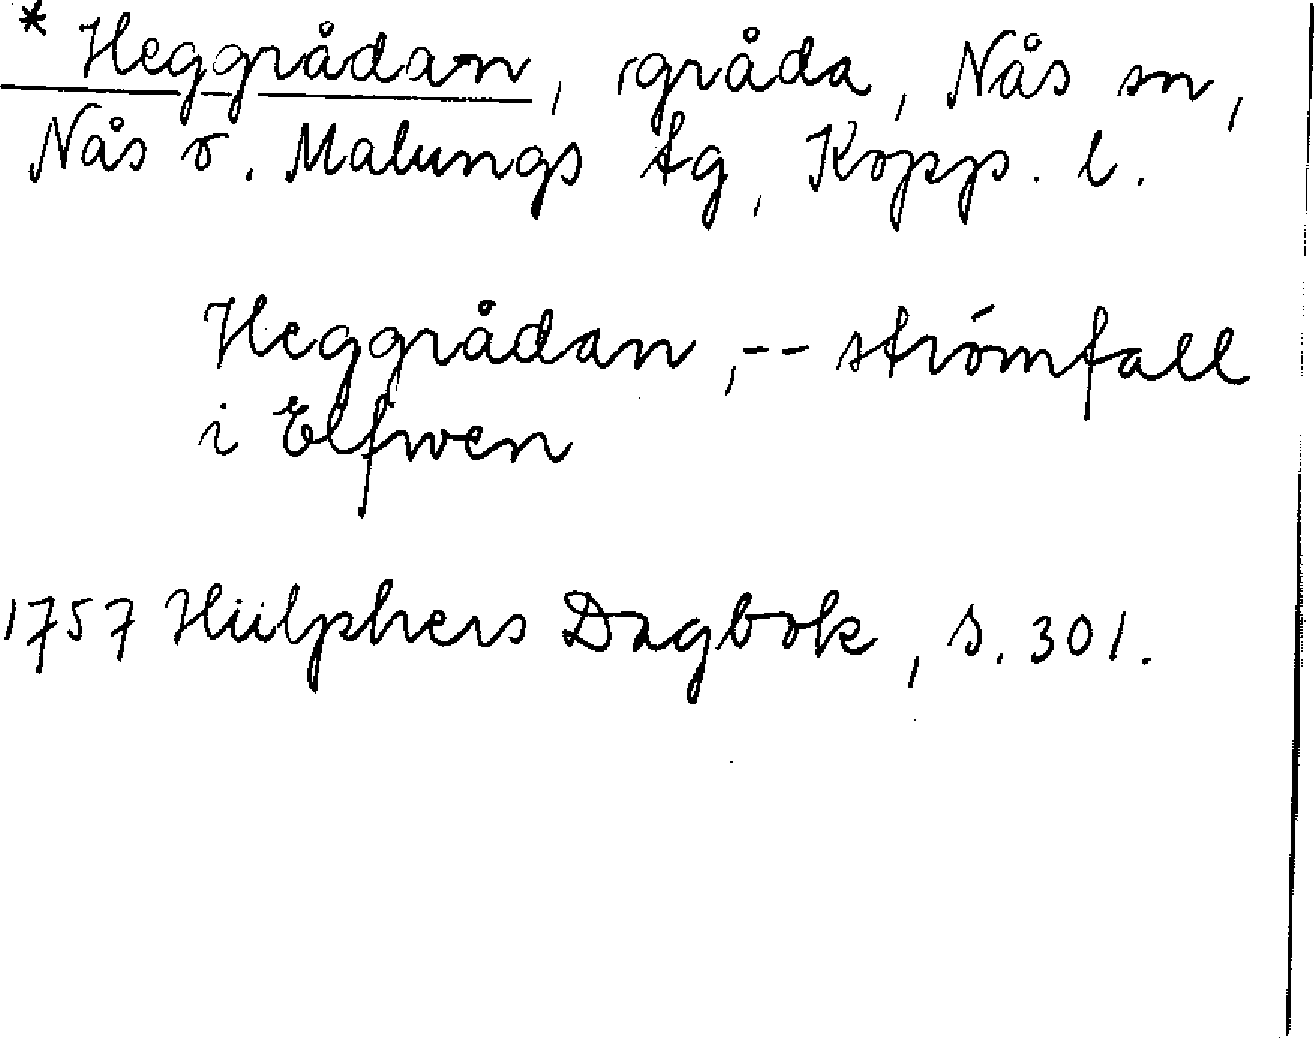 * Heggrådan, gråda, Nås sn,
Nås o. Malungs tg, Kopp. l.
Heggrådan, -- strömfall
i Elfwen
1757 Hülphers Dagbok, s. 301.